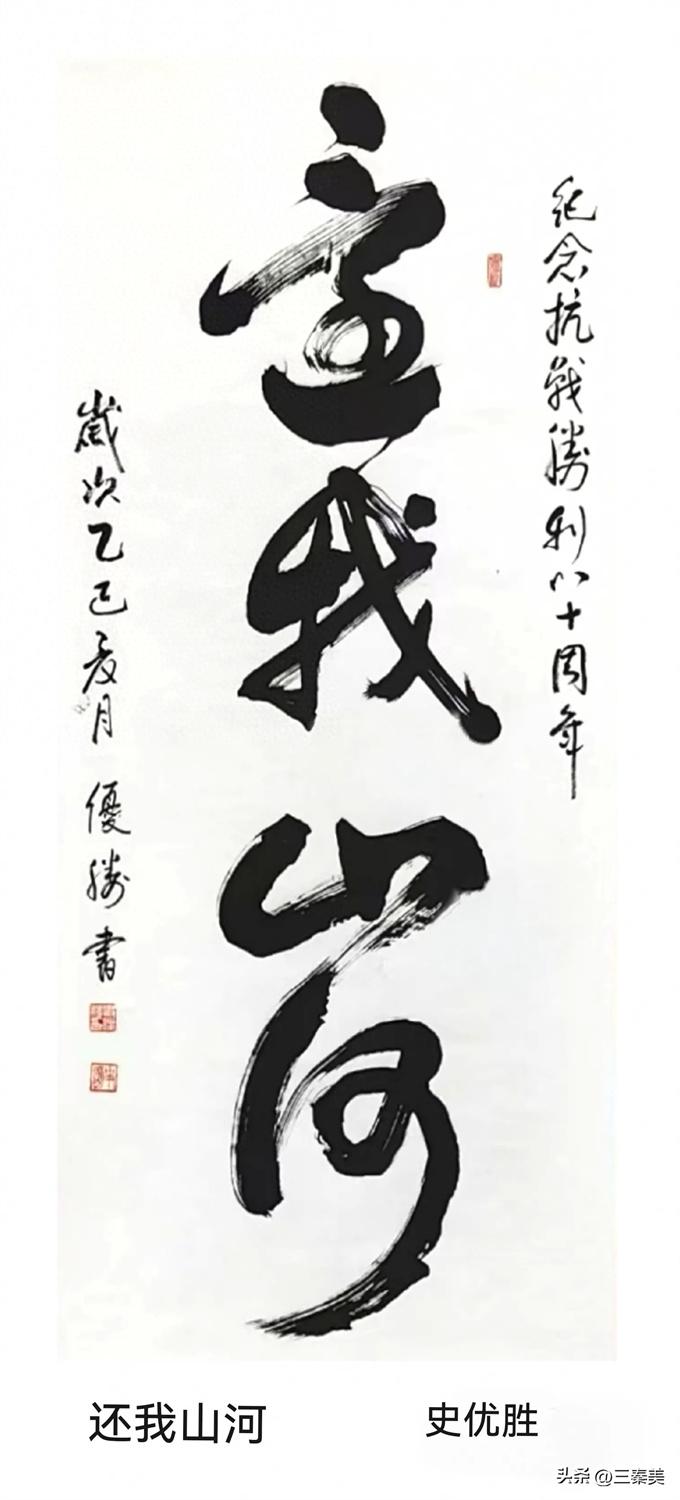 紀念抗戰勝利八十周年
還我山河
歲次乙巳夏月 優勝書
还我山河
史优胜
头条 @三秦美